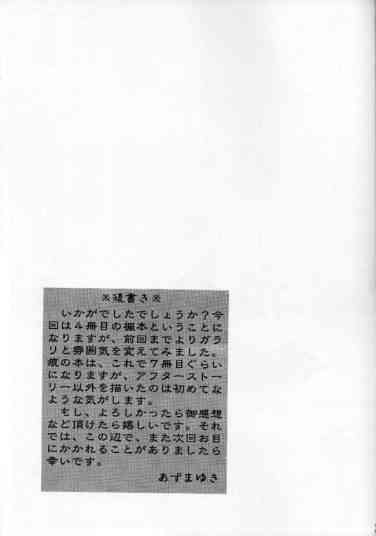 ※後書き※
いかがでしたでしょうか？今
回は４冊目の個本ということに
なりますが、前回までよりガラ
リと雰囲気を変えてみました。
の本は、これで７冊目ぐらい
になりますが、アフタースト－
リー以外を描いたのは初めてな
ような気がします。
もし、よろしかったら御感想
など頂けたら嬉しいです。それ
では、この辺で、また次回お目
にかかれることがありましたら
幸いです。
あずまゆき